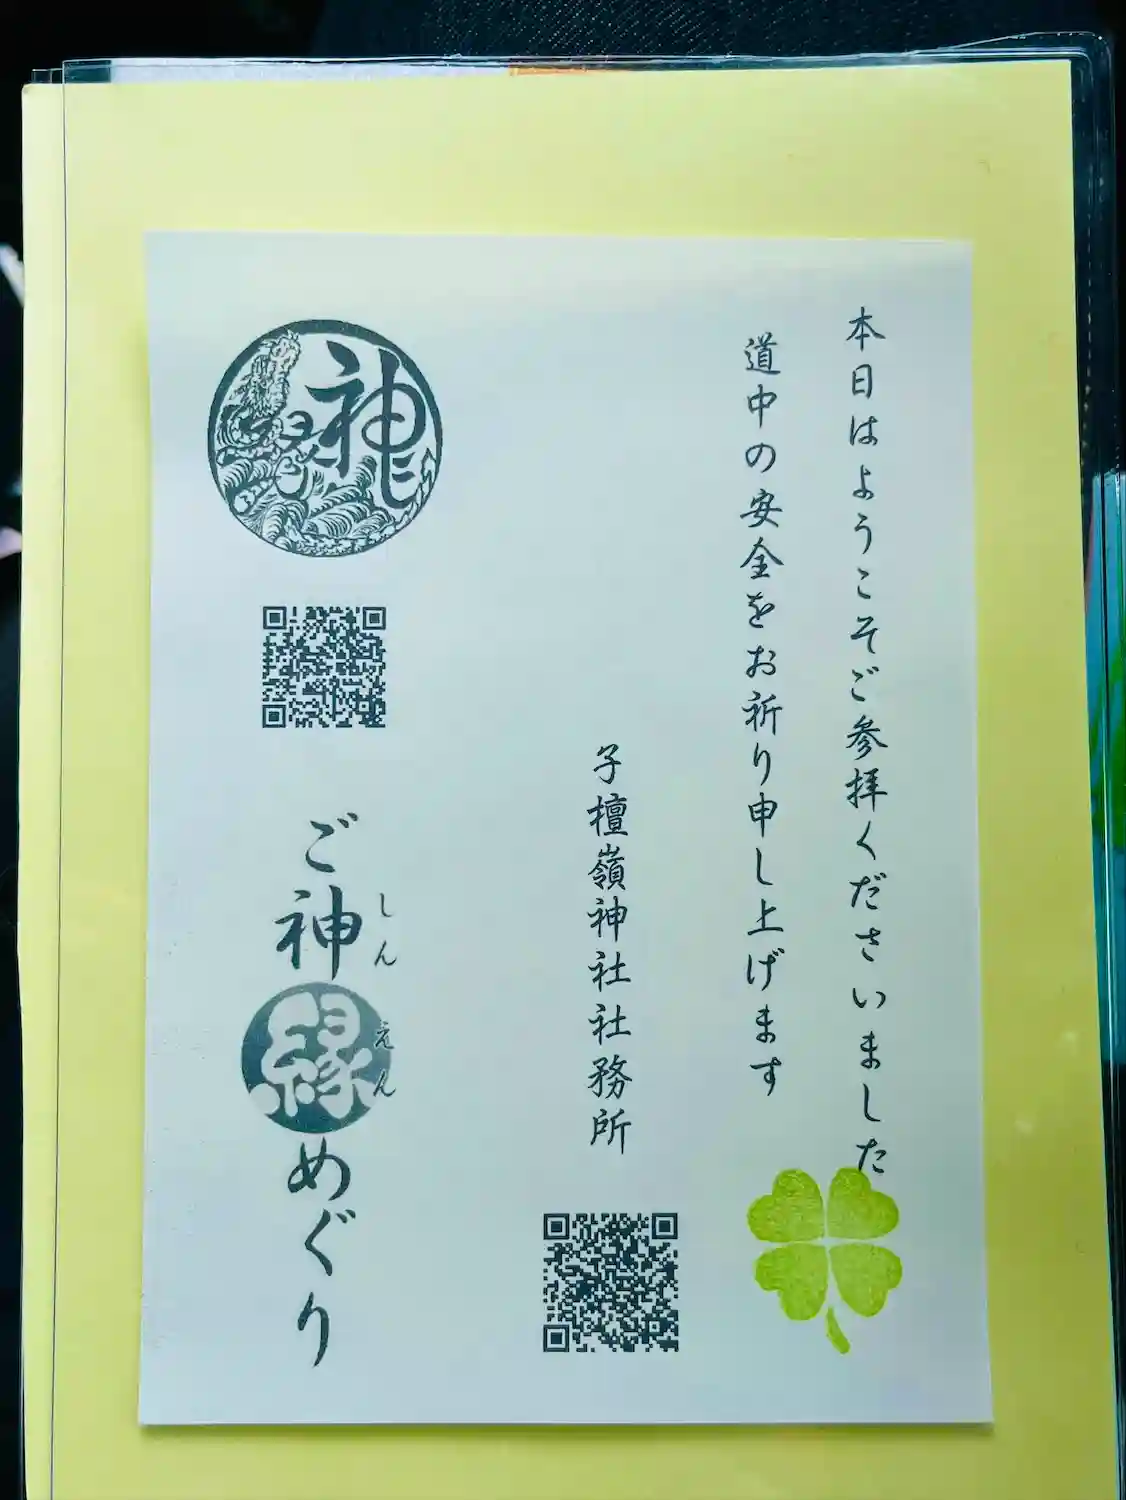 本日はようこそご参拝くださいました
道中の安全をお祈り申し上げます
子檀嶺神社社務所
神縁
ご神縁めぐり
しんえん